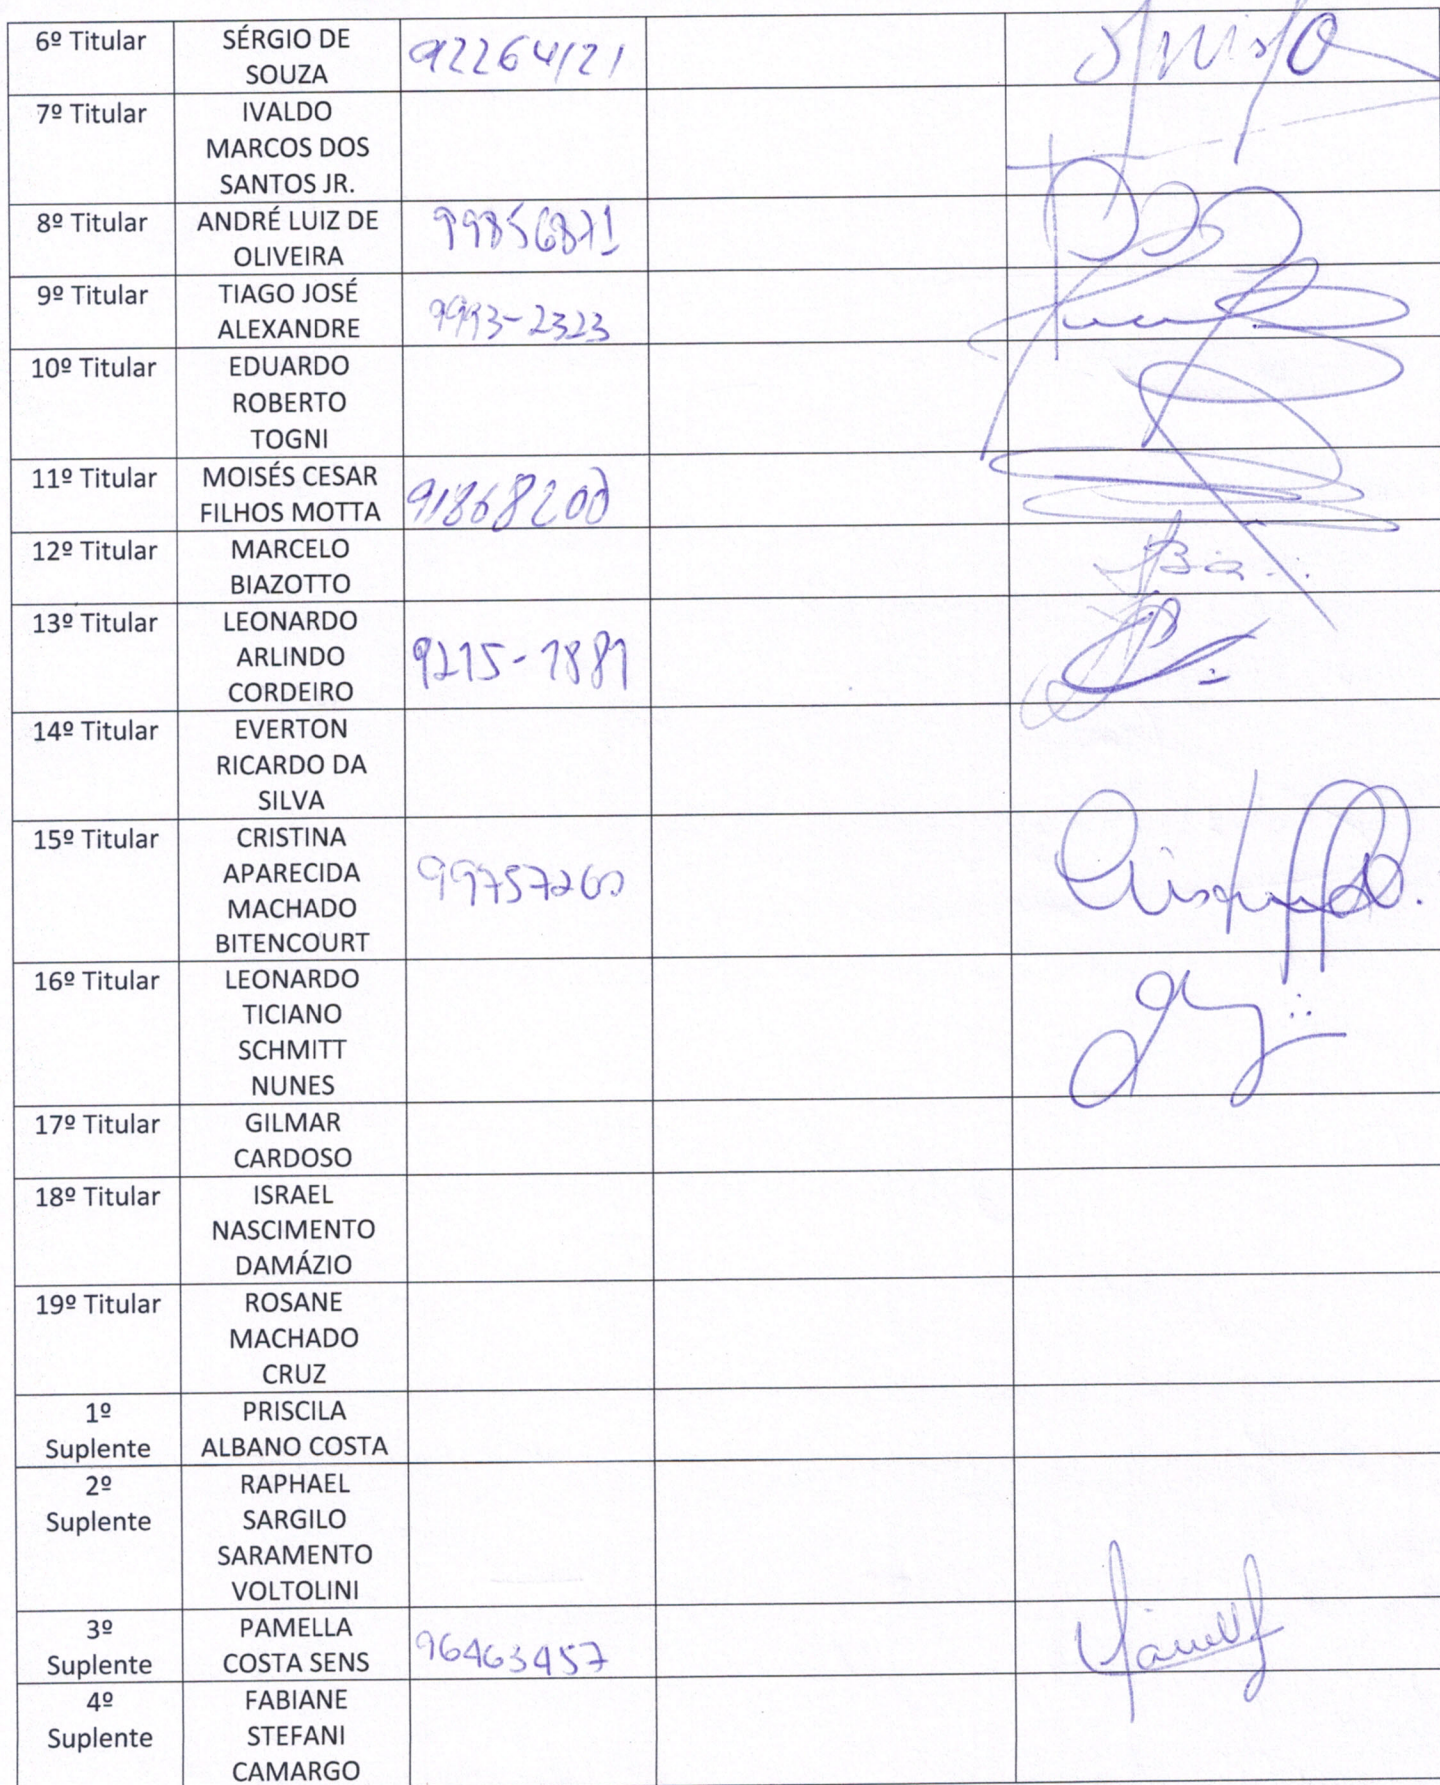 6º Titular
SÉRGIO DE
SOUZA
92264121
7º Titular
IVALDO
MARCOS DOS
SANTOS JR.
8º Titular
ANDRÉ LUIZ DE
OLIVEIRA
99856871
9º Titular
TIAGO JOSÉ
ALEXANDRE
9993-2323
10º Titular
EDUARDO
ROBERTO
TOGNI
11º Titular
MOISÉS CESAR
FILHOS MOTTA
91868200
12º Titular
MARCELO
BIAZOTTO
13º Titular
LEONARDO
ARLINDO
CORDEIRO
9215-1881
14º Titular
EVERTON
RICARDO DA
SILVA
15º Titular
CRISTINA
APARECIDA
MACHADO
BITENCOURT
99757260
16º Titular
LEONARDO
TICIANO
SCHMITT
NUNES
17º Titular
GILMAR
CARDOSO
18º Titular
ISRAEL
NASCIMENTO
DAMÁZIO
19º Titular
ROSANE
MACHADO
CRUZ
1º
Suplente
PRISCILA
ALBANO COSTA
2º
Suplente
RAPHAEL
SARGILO
SARAMENTO
VOLTOLINI
3º
Suplente
PAMELLA
COSTA SENS
96463457
4º
Suplente
FABIANE
STEFANI
CAMARGO